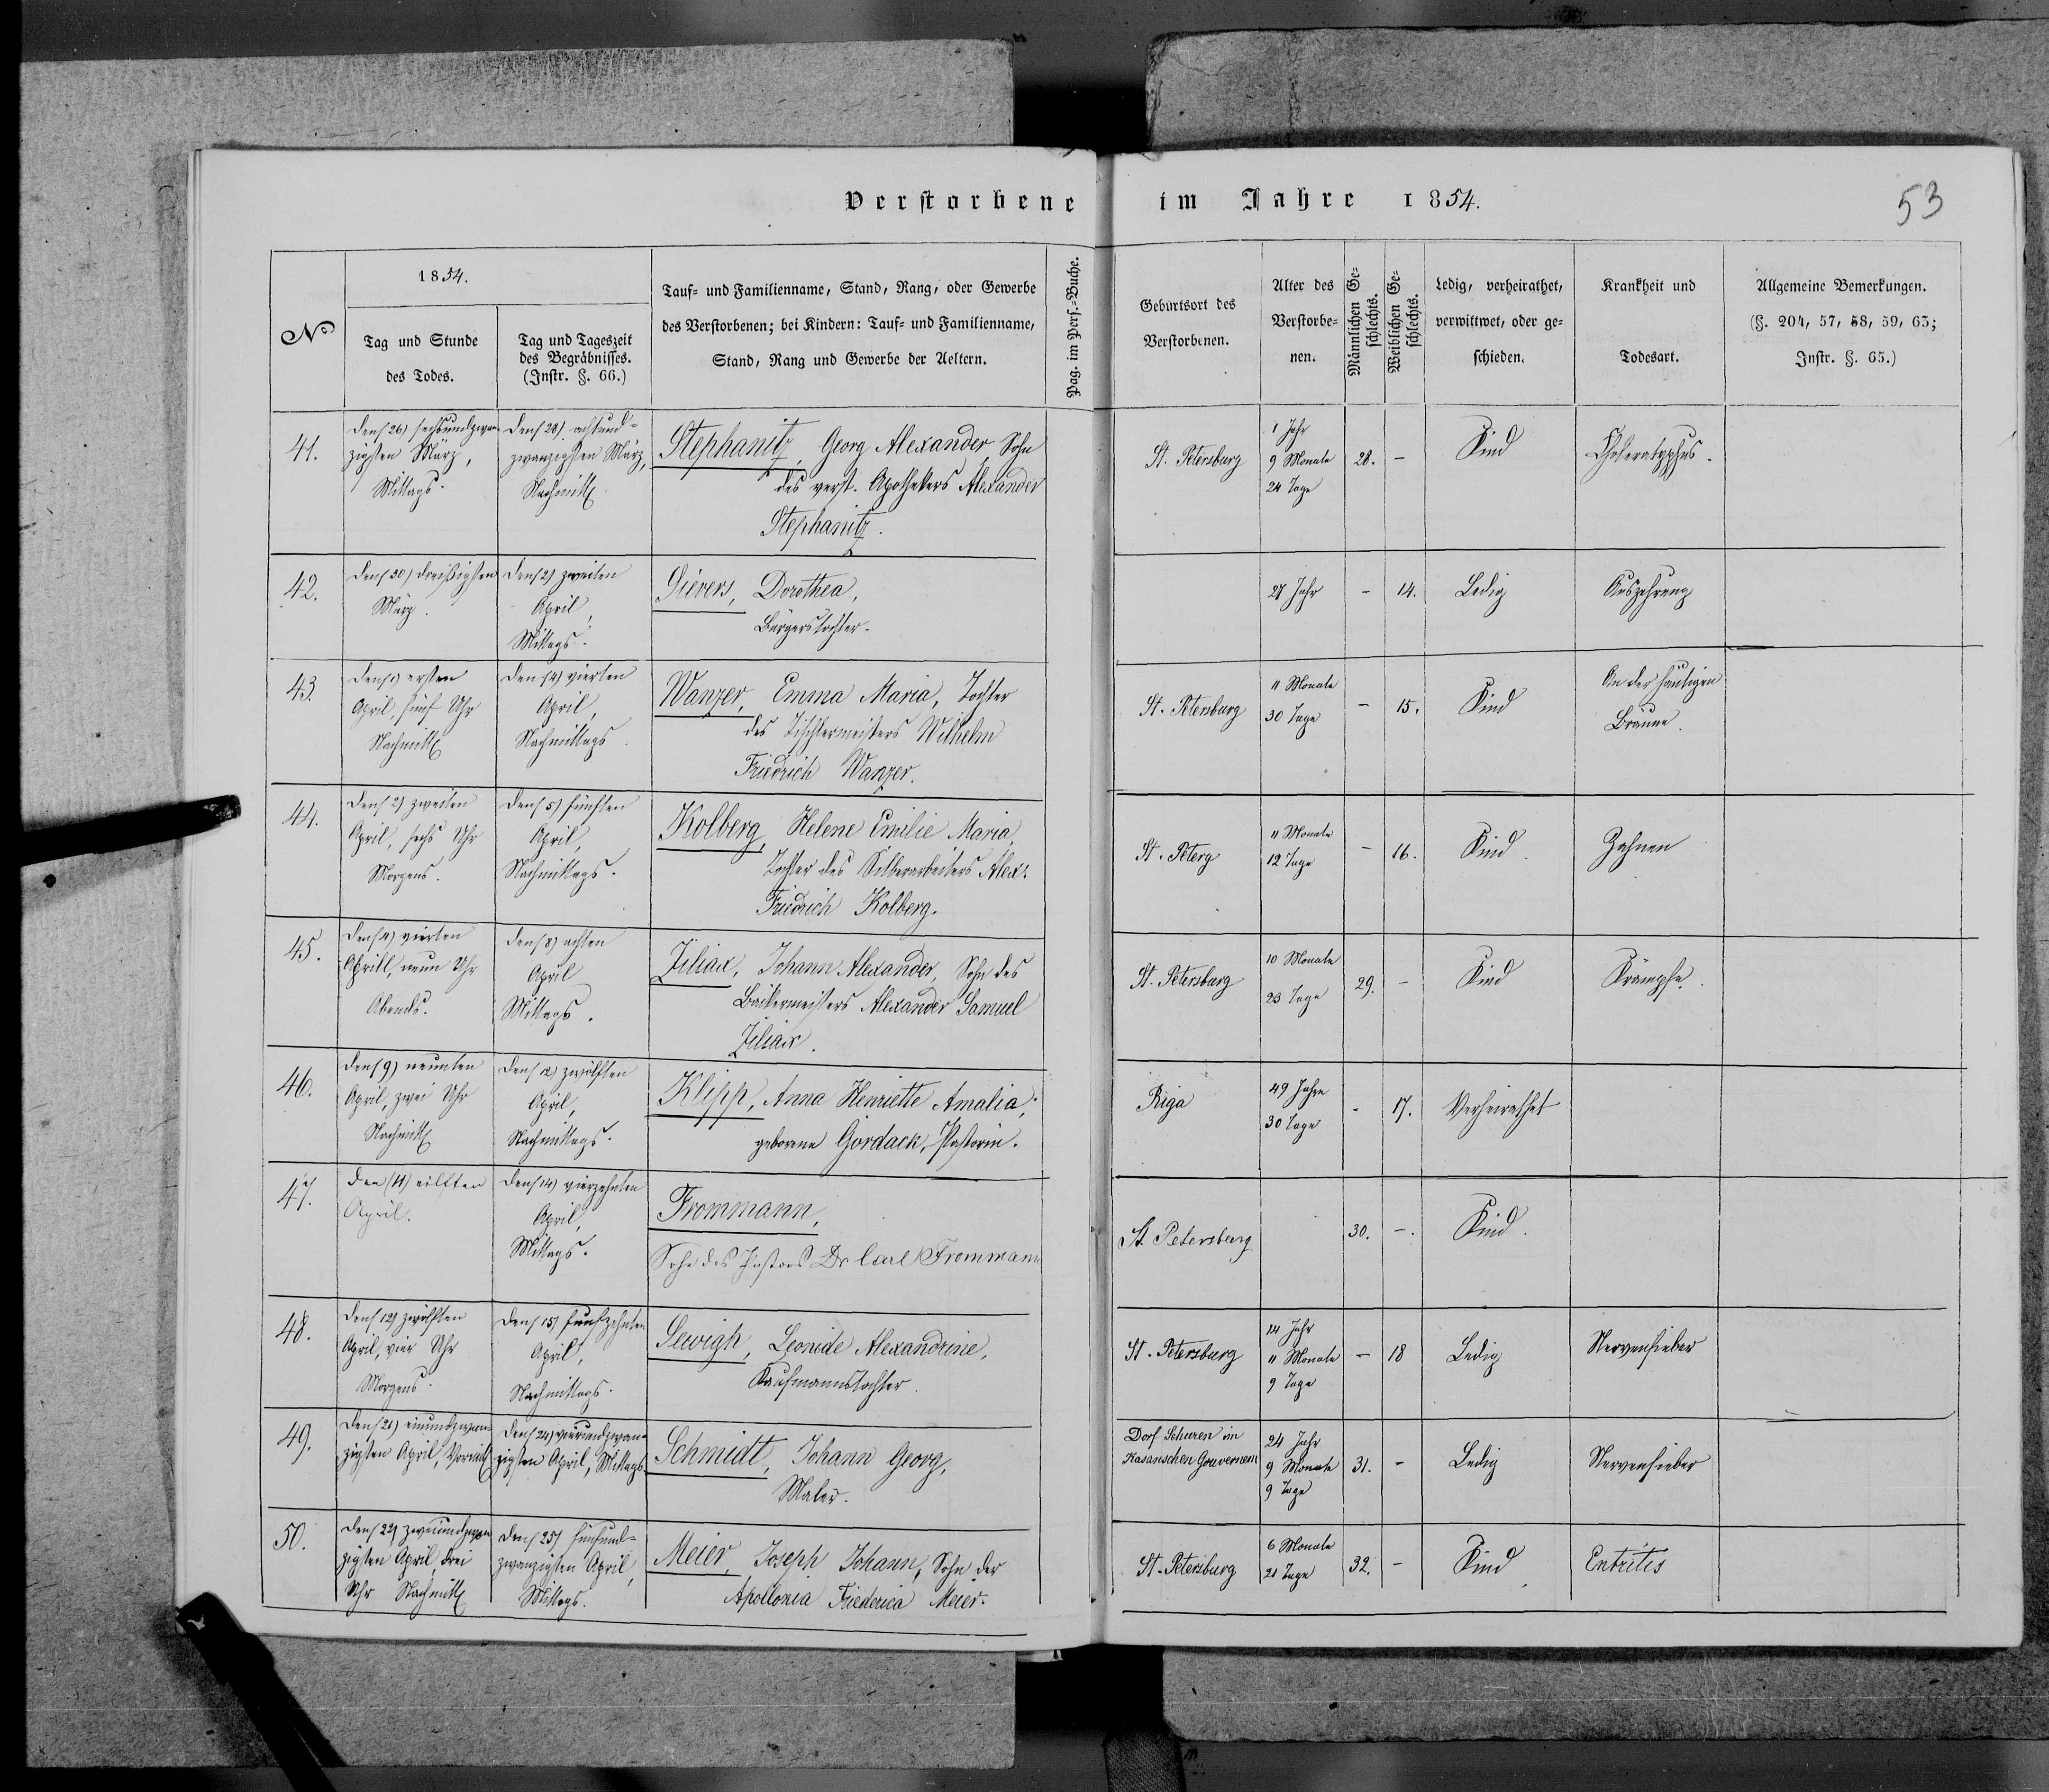 Verstorbene im Jahre 1854.
53
No
1854.
Tag und Stunde
des Todes.
Tag und Tageszeit
des Begräbnisses.
(Instr. §. 66.)
Tauf- und Familienname, Stand, Rang, oder Gewerbe
des Verstorbenen; bei Kindern: Tauf- und Familienname,
Stand, Rang und Gewerbe der Aeltern.
Pag. im Pers.-Buche.
Geburtsort des
Verstorbenen.
Alter des
Verstorbe-
nen.
Männlichen Ge-
schlechts.
Weiblichen Ge-
schlechts.
Ledig, verheirathet,
verwittwet, oder ge-
schieden.
Krankheit und
Todesart.
Allgemeine Bemerkungen.
(§. 204, 57, 58, 59, 63;
Instr. §. 65.)
41.
Den (26) sechsundzwan-
zigsten März,
Mittags.
Den (28) achtund-
zwanzigsten März,
Nachmitt
Stephanitz, Georg Alexander, Sohn
des verst. Apothekers Alexander
Stephanitz.
St. Petersburg
1 Jahr
9 Monate
24 Tage
28.
-
Kind
Choleratyphus.
42.
Den (30) dreißigsten
März.
Den (2) zweiten
April,
Mittags.
Sievers, Dorothea,
Bürgerstochter.
27 Jahr
-
14.
Ledig
Auszehrung
43.
Den (1) ersten
April, fünf Uhr
Nachmitt
Den (4) vierten
April,
Nachmittags.
Wanzer, Emma Maria, Tochter
des Tischlermeisters Wilhelm
Friedrich Wanzer.
St. Petersburg
11 Monate
30 Tage
-
15.
Kind
An der häutigen
Bräune.
44.
Den (2) zweiten
April, sechs Uhr
Morgens.
Den (5) fünften
April,
Nachmittags.
Kolberg, Helene Emilie Maria,
Tochter des Silberarbeiters Alex:
Friedrich Kolberg.
St. Peterg
11 Monate
12 Tage
-
16.
Kind.
Zahnen
45.
Den (4) vierten
Aprill, neun Uhr
Abends.
Den (8) achten
April
Mittags.
Ziliax, Johann Alexander, Sohn des
Bäckermeisters Alexander Samuel
Ziliax.
St. Petersburg
10 Monate
23 Tage
29.
-
Kind
Krämpfe.
46.
Den (9) neunten
April, zwei Uhr
Nachmitt
Den (12) zwölften
April,
Nachmittags.
Klipp, Anna Henriette Amalia,
geborene Gordack, Pastorin.
Riga
49 Jahre
30 Tage
-
17.
Verheirathet
47.
Den (11) eilften
April.
Den (14) vierzehnten
April,
Mittags.
Frommann,
Sohn des Pastors Dr Carl Frommann
St. Petersburg
30.
-.
Kind.
48.
Den (12) zwölften
April, vier Uhr
Morgens.
Den (15) funfzehnten
April,
Nachmittags.
Sewigh, Leonide Alexandrine,
Kaufmannstochter.
St. Petersburg
14 Jahr
11 Monate
9 Tage
-
18
Ledig
Nervenfieber
49.
Den (21) einundzwan-
zigsten April, Vormitt
Den (24) vierundzwan-
zigsten April, Mittags.
Schmidt, Johann Georg,
Maler.
Dorf Schuren im
Kasanschen Gouvernem
24 Jahr
9 Monate
9 Tage
31.
-
Ledig
Nervenfieber
50.
Den (22) zweiundzwan
zigsten April, drei
Uhr Nachmitt
Den (25) fünfund-
zwanzigsten April,
Mittags.
Meier, Joseph Johann, Sohn der
Apollonia Friederica Meier.
St. Petersburg
6 Monate
21 Tage
32.
-
Kind
Entritis